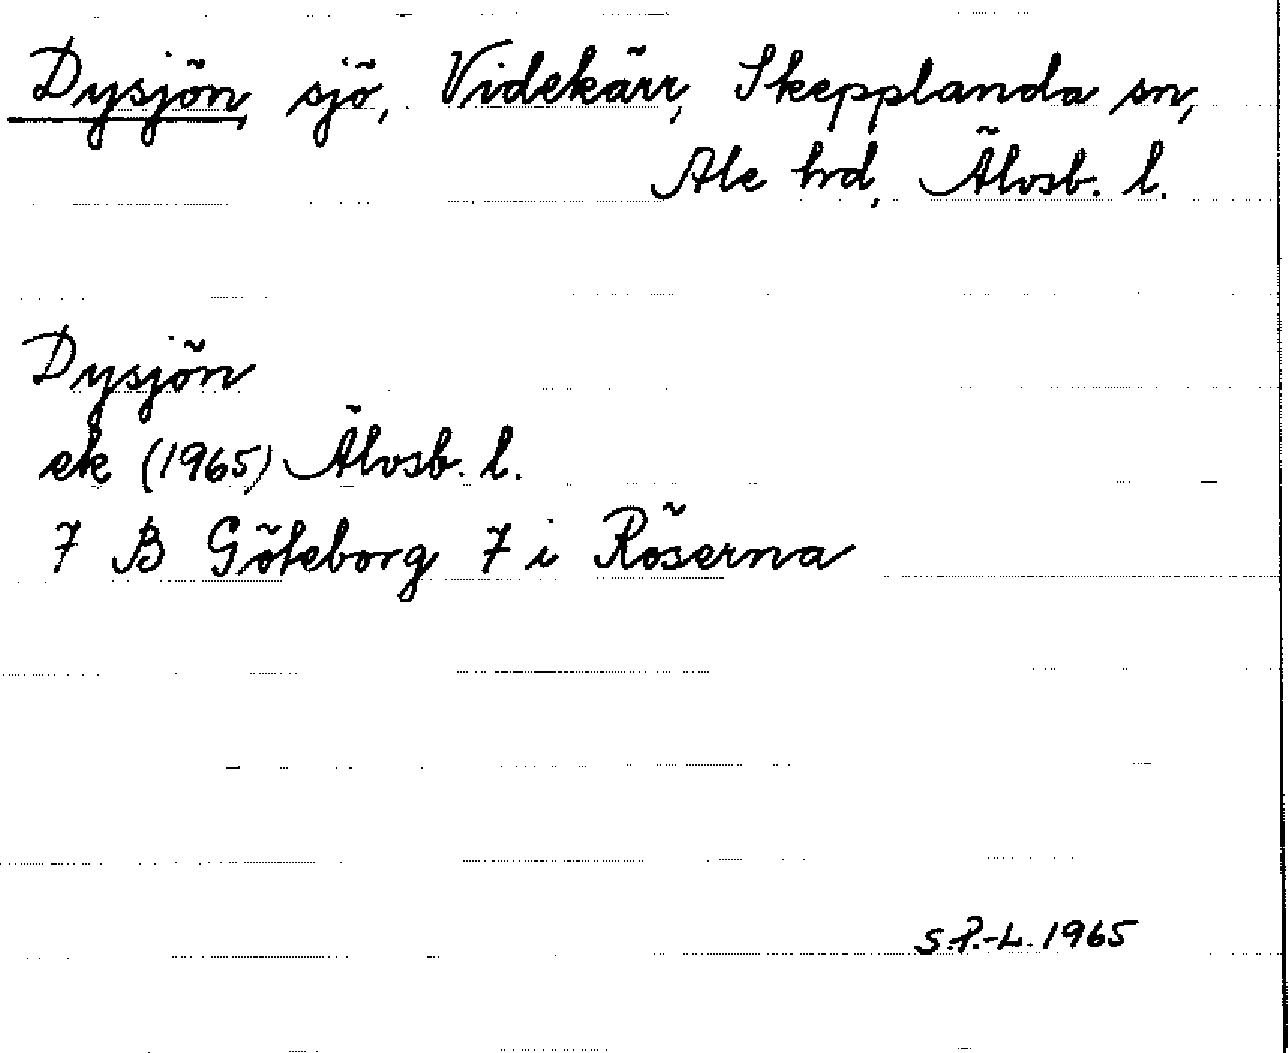 Dysjön, sjö, Videkärr, Skepplanda sn,
Ale hrd, Älvsb. l.
Dysjön
ek (1965) Älvsb. l.
7 B Göteborg 7 i Röserna
S.P.-L. 1965